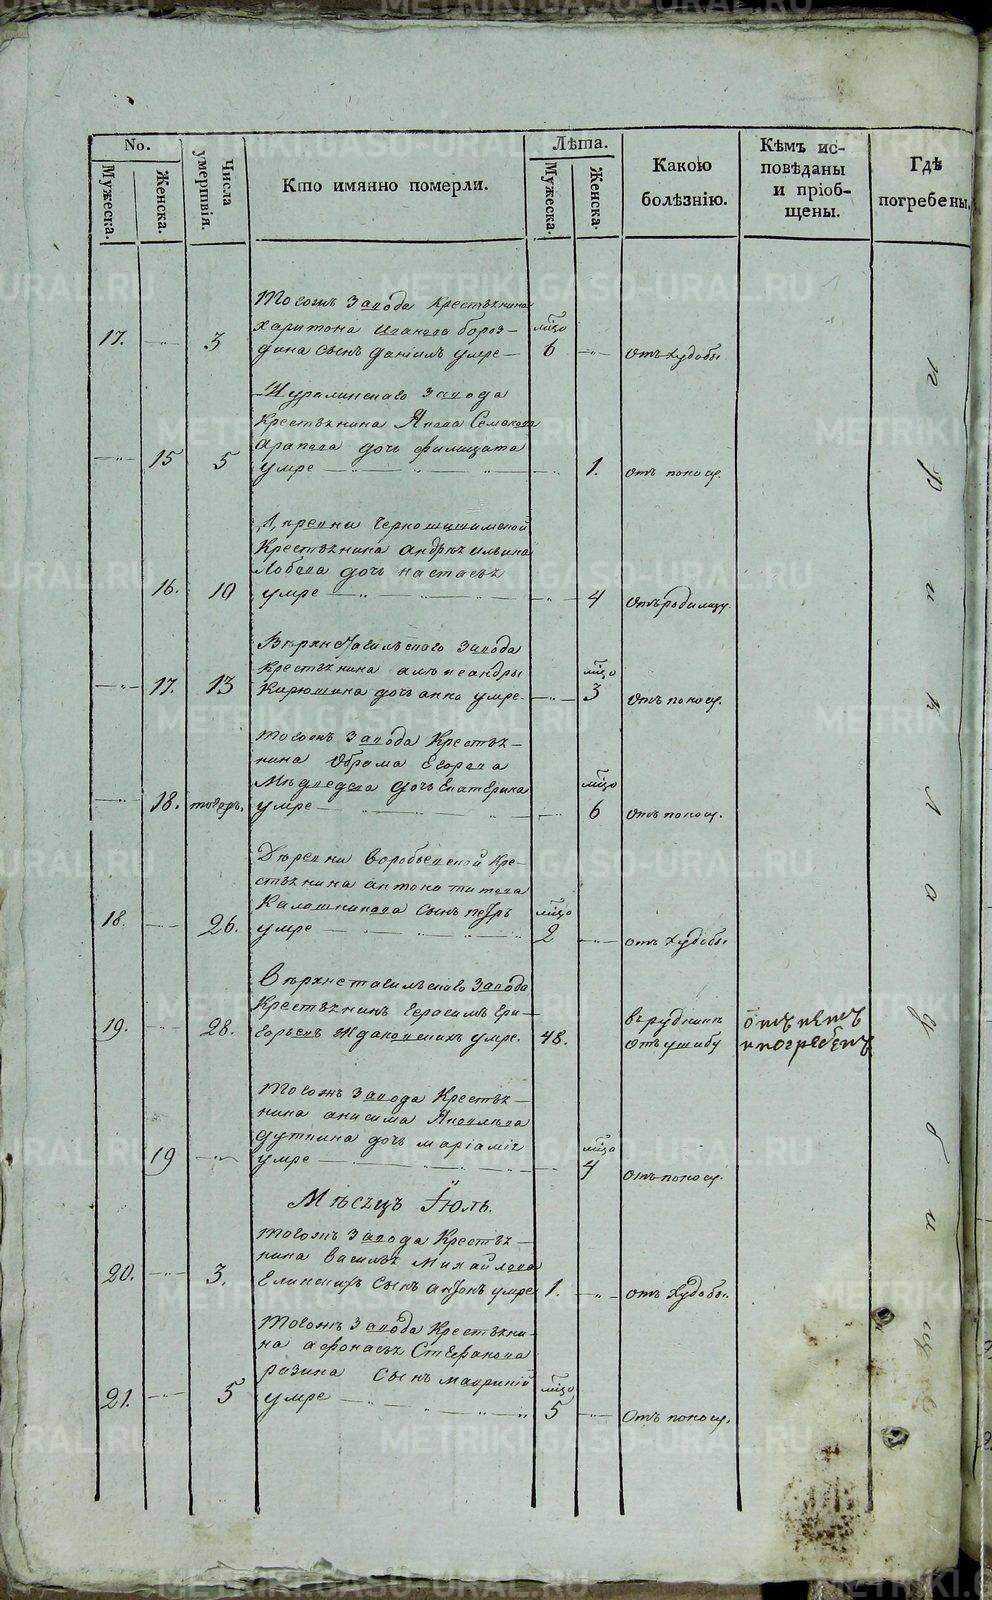 METRIKI.GASO-URAL.RU
No.
Мужеска.
Женска.
Числа умертвія.
Кто имянно померли.
Лѣта.
Мужеска.
Женска.
Какою
болѣзнію.
Кѣмъ ис-
повѣданы
и пріоб-
щены.
Гдѣ
погребены.
Тогожъ завода крестьянина
харитона Иванова бороз-
17. —"— 3 дина сынъ даніилъ умре — мцо 6 —"— отъ худобы
Шуралинскаго завода
крестьянина Якова Семенова
арапова дочь филицата
—"— 15 5 умре —"— 1. отъ поносу.
крестьянина андрѣя ильина
Лобова дочь настасья
16. 10 умре —"— 4 отъ родимцу.
Верхнетагильскаго завода
крестьянина александры
—"— 17. 13 Кирюшина дочь анна умре. —"— мцо 3 отъ поносу.
тогожъ завода крестья-
нина Обрама Егорова
Медведева дочь Екатерина
—"— 18. тогожъ. умре —"— мцо 6 отъ поносу.
Деревни воробьевской кре-
стьянина антона титова
Калашникова сынъ петръ
18. —"— 26. умре —"— мцо 2 —"— отъ худобы
Верхнетагильскаго завода
крестьянинъ Герасимъ Гри-
19. —"— 28. горьевъ умре. 48. —"— въ рудникѣ отъ ушибу отпетъ и погребенъ
тогожъ завода крестья-
нина анисима Яковлева
дуткина дочь маріамія
19 —"— умре — мцо 4 отъ поносу.
Мѣсяцъ Іюль.
тогожъ завода крестья-
нина василья Михайлова
20. —"— 3. сынъ антонъ умре 1. —"— отъ худобы.
тогожъ завода крестьяни-
на афонасья Стефанова
разина сынъ маврикій
21. —"— 5 умре —"— мцо 5 —"— отъ поносу.
при кладбище